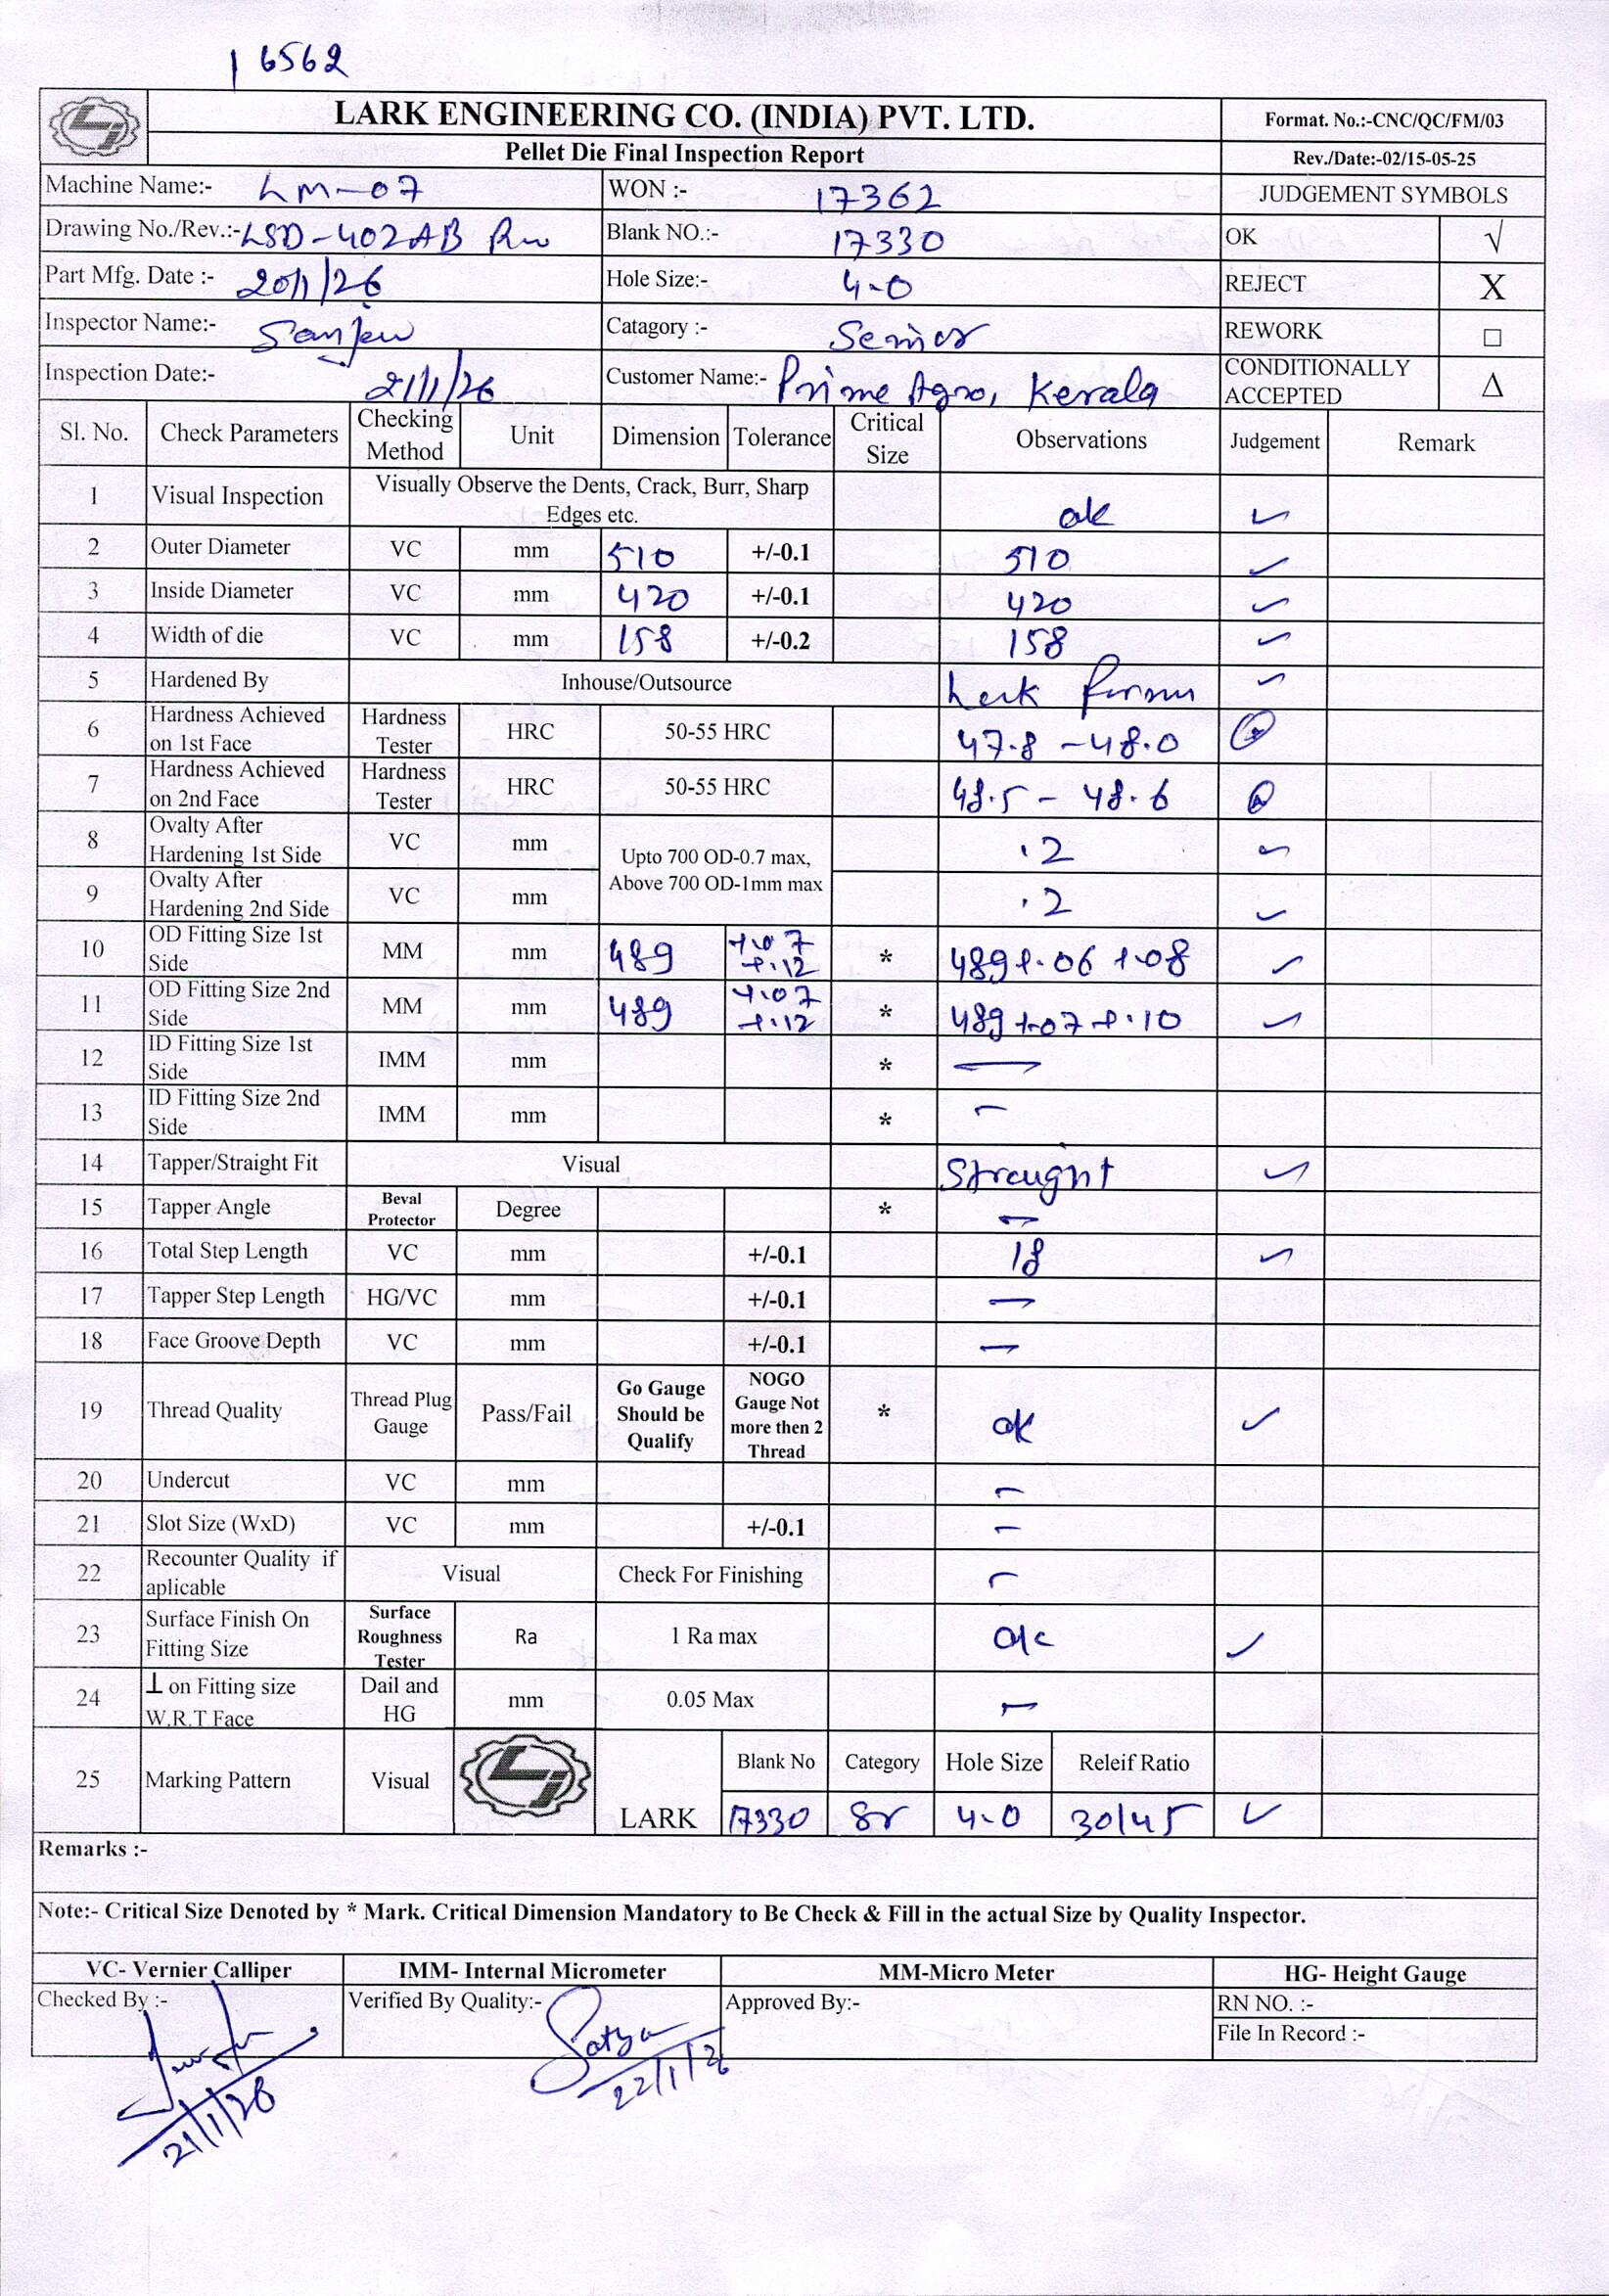 16562
LARK ENGINEERING CO. (INDIA) PVT. LTD.
Format. No.:-CNC/QC/FM/03
Pellet Die Final Inspection Report
Rev./Date:-02/15-05-25
Machine Name:- LM-07 WON :- 17362 JUDGEMENT SYMBOLS
Drawing No./Rev.:- LSD-402AB Blank NO.:- 17330 OK √
Part Mfg. Date :- 20/1/26 Hole Size:- 4.0 REJECT X
Inspector Name:- Sanjeev Catagory :- Senior REWORK □
Inspection Date:- 21/1/26 Customer Name:- Prime Agro, Kerala CONDITIONALLY ACCEPTED Δ
Sl. No. Check Parameters Checking Method Unit Dimension Tolerance Critical Size Observations Judgement Remark
1 Visual Inspection Visually Observe the Dents, Crack, Burr, Sharp Edges etc. ok ✓
2 Outer Diameter VC mm 510 +/-0.1 510 ✓
3 Inside Diameter VC mm 420 +/-0.1 420 ✓
4 Width of die VC mm 158 +/-0.2 158 ✓
5 Hardened By Inhouse/Outsource Lark ✓
6 Hardness Achieved on 1st Face Hardness Tester HRC 50-55 HRC 47.8 - 48.0
7 Hardness Achieved on 2nd Face Hardness Tester HRC 50-55 HRC 48.5 - 48.6
8 Ovalty After Hardening 1st Side VC mm Upto 700 OD-0.7 max, Above 700 OD-1mm max .2 ✓
9 Ovalty After Hardening 2nd Side VC mm .2 ✓
10 OD Fitting Size 1st Side MM mm 489 +.07 +.12 * 489 +.06 +.08 ✓
11 OD Fitting Size 2nd Side MM mm 489 +.07 +.12 * 489 +.07 +.10 ✓
12 ID Fitting Size 1st Side IMM mm * —
13 ID Fitting Size 2nd Side IMM mm * —
14 Tapper/Straight Fit Visual Straight ✓
15 Tapper Angle Beval Protector Degree * —
16 Total Step Length VC mm +/-0.1 18 ✓
17 Tapper Step Length HG/VC mm +/-0.1 —
18 Face Groove Depth VC mm +/-0.1 —
19 Thread Quality Thread Plug Gauge Pass/Fail Go Gauge Should be Qualify NOGO Gauge Not more then 2 Thread * ok ✓
20 Undercut VC mm —
21 Slot Size (WxD) VC mm +/-0.1 —
22 Recounter Quality if aplicable Visual Check For Finishing —
23 Surface Finish On Fitting Size Surface Roughness Tester Ra 1 Ra max ok ✓
24 ⊥ on Fitting size W.R.T Face Dail and HG mm 0.05 Max —
25 Marking Pattern Visual LARK Blank No Category Hole Size Releif Ratio
17330 Sr 4.0 30/45 ✓
Remarks :-
Note:- Critical Size Denoted by * Mark. Critical Dimension Mandatory to Be Check & Fill in the actual Size by Quality Inspector.
VC- Vernier Calliper IMM- Internal Micrometer MM-Micro Meter HG- Height Gauge
Checked By :- Verified By Quality:- Satya Approved By:- RN NO. :-
File In Record :-
21/1/26 22/1/26